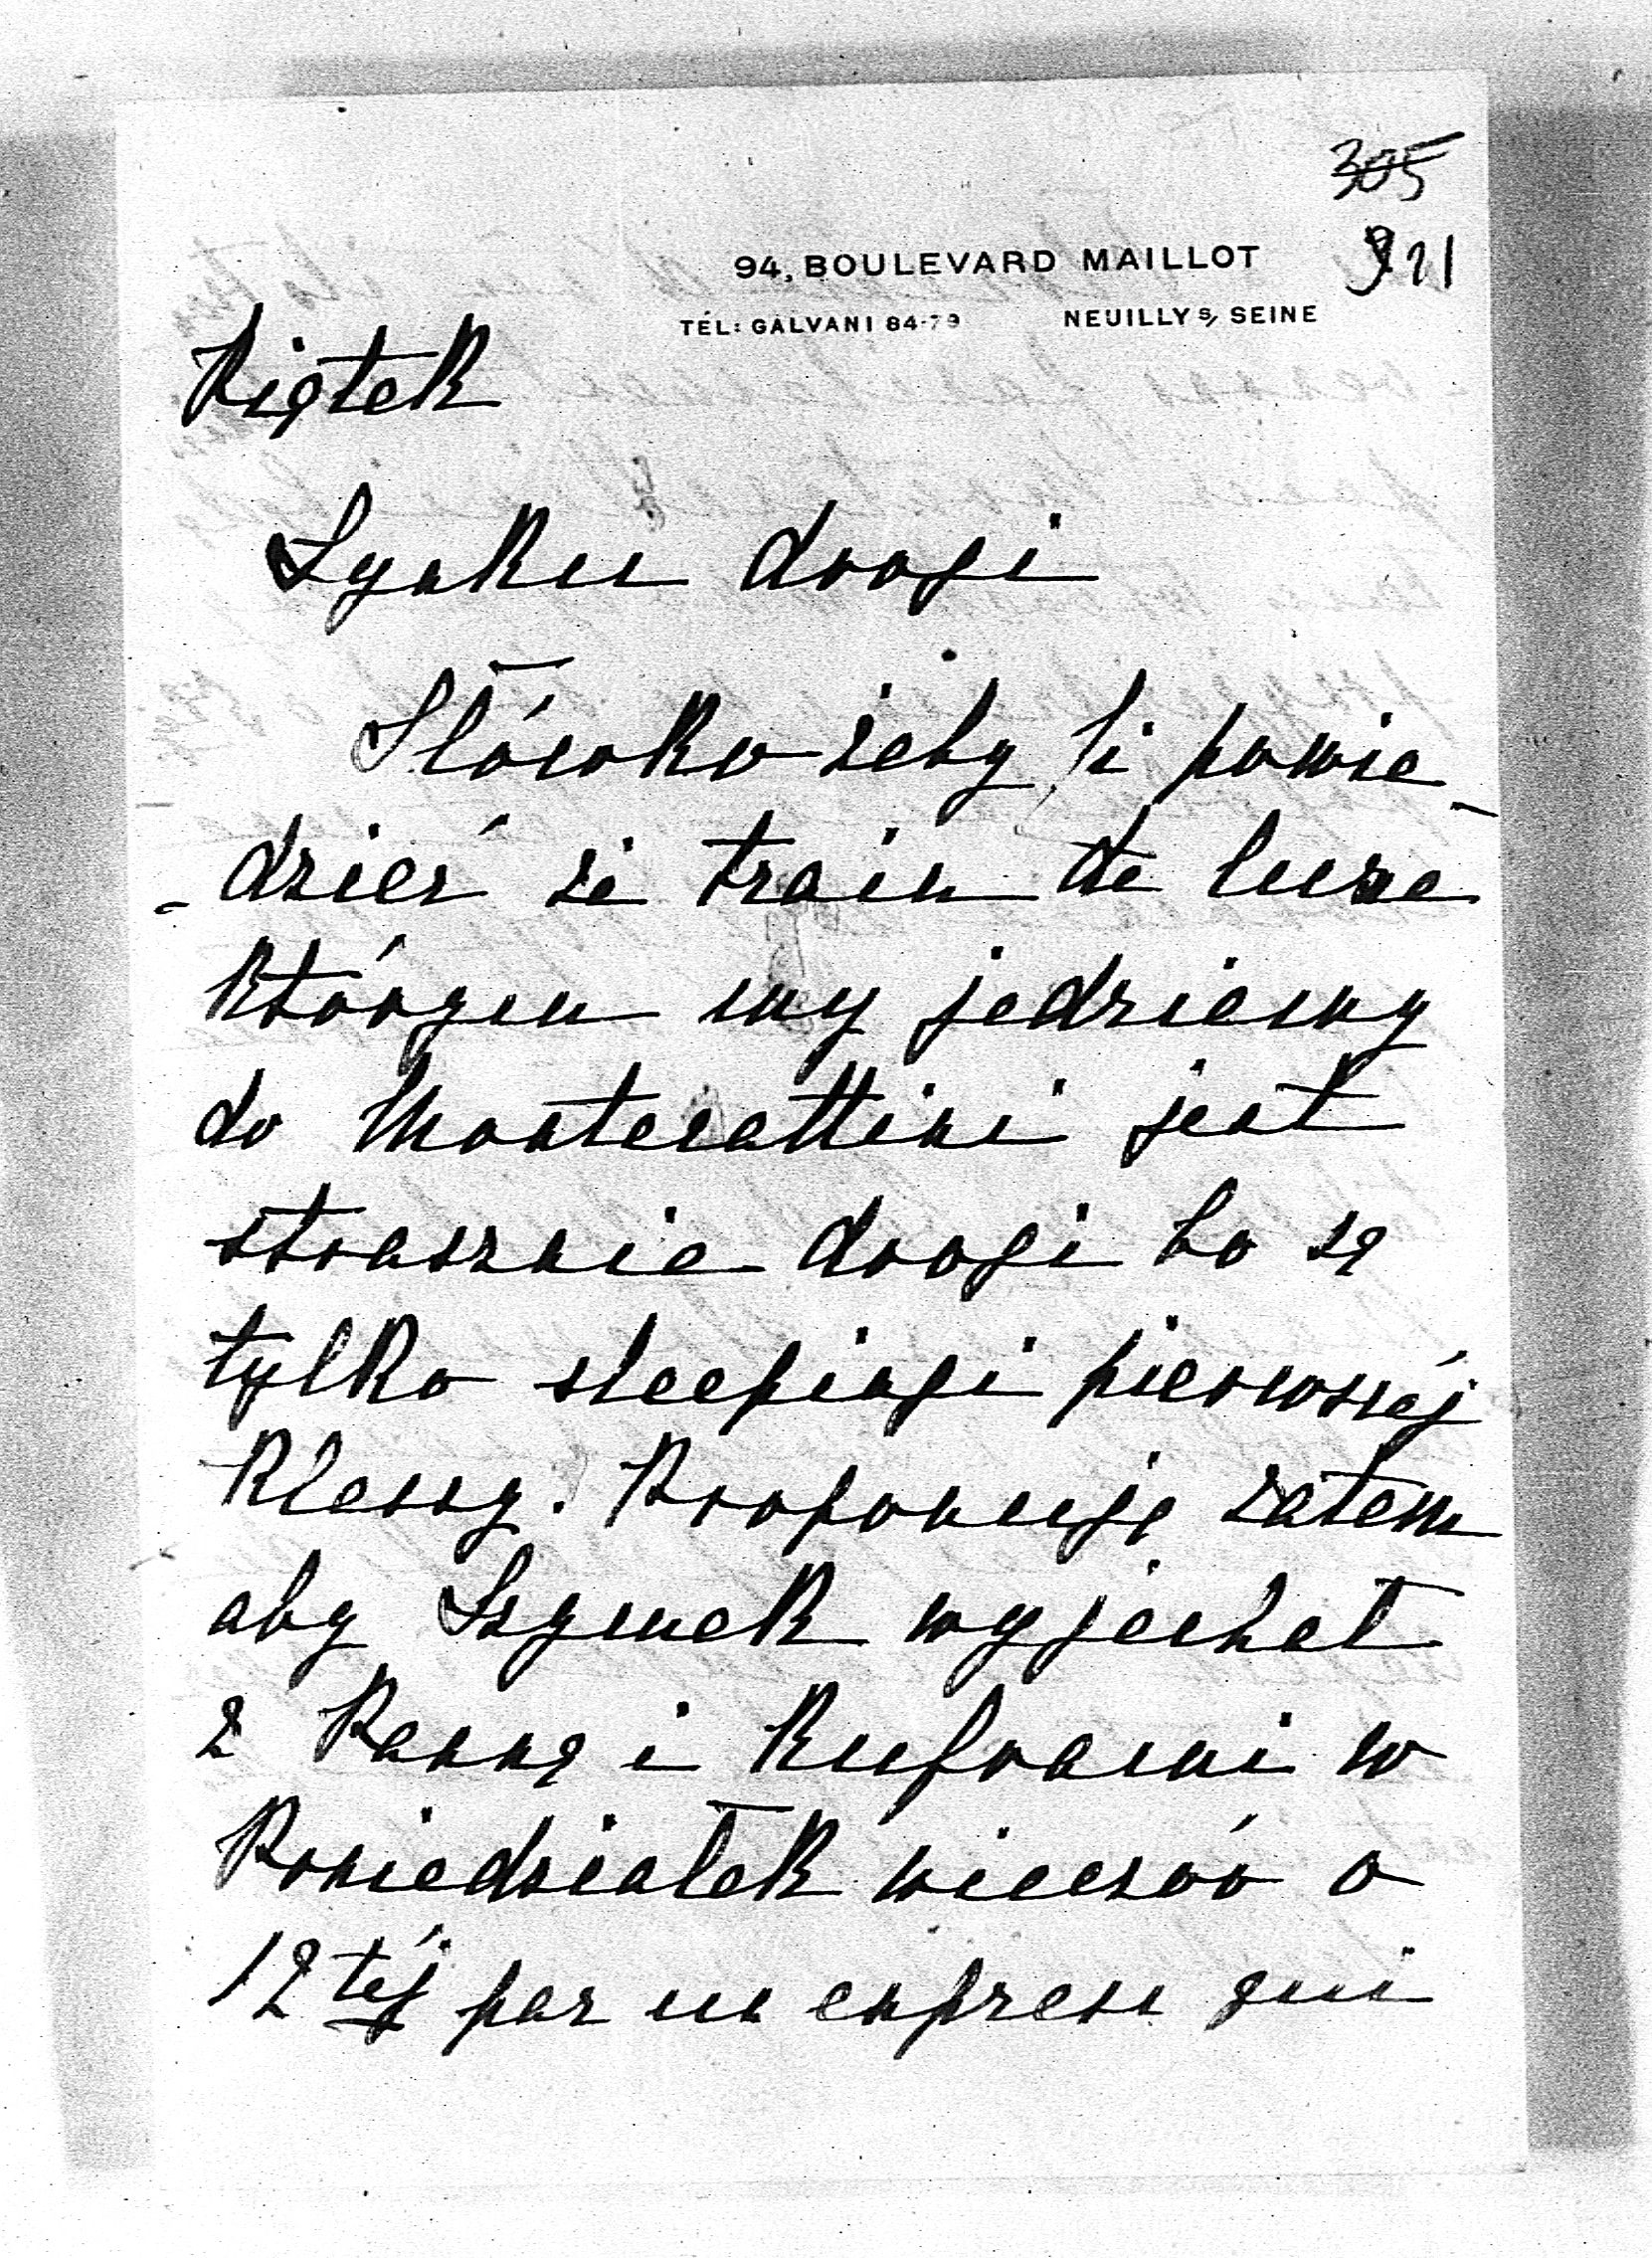 305
921
94, BOULEVARD MAILLOT
TÉL: GALVANI 84-79 NEUILLY S/ SEINE
Piątek
Synku drogi
Słówko żeby Ci powie-
-dzieć że train de luxe
którym my jedziemy
do Montecattini jest
strasznie drogi bo są
tylko sleepingi pierwszéj
klassy. Proponuję zatem
aby Szymek wyjechał
z Panną i Kuframi w
Poniedziałek wieczór o
12téj par un express qui